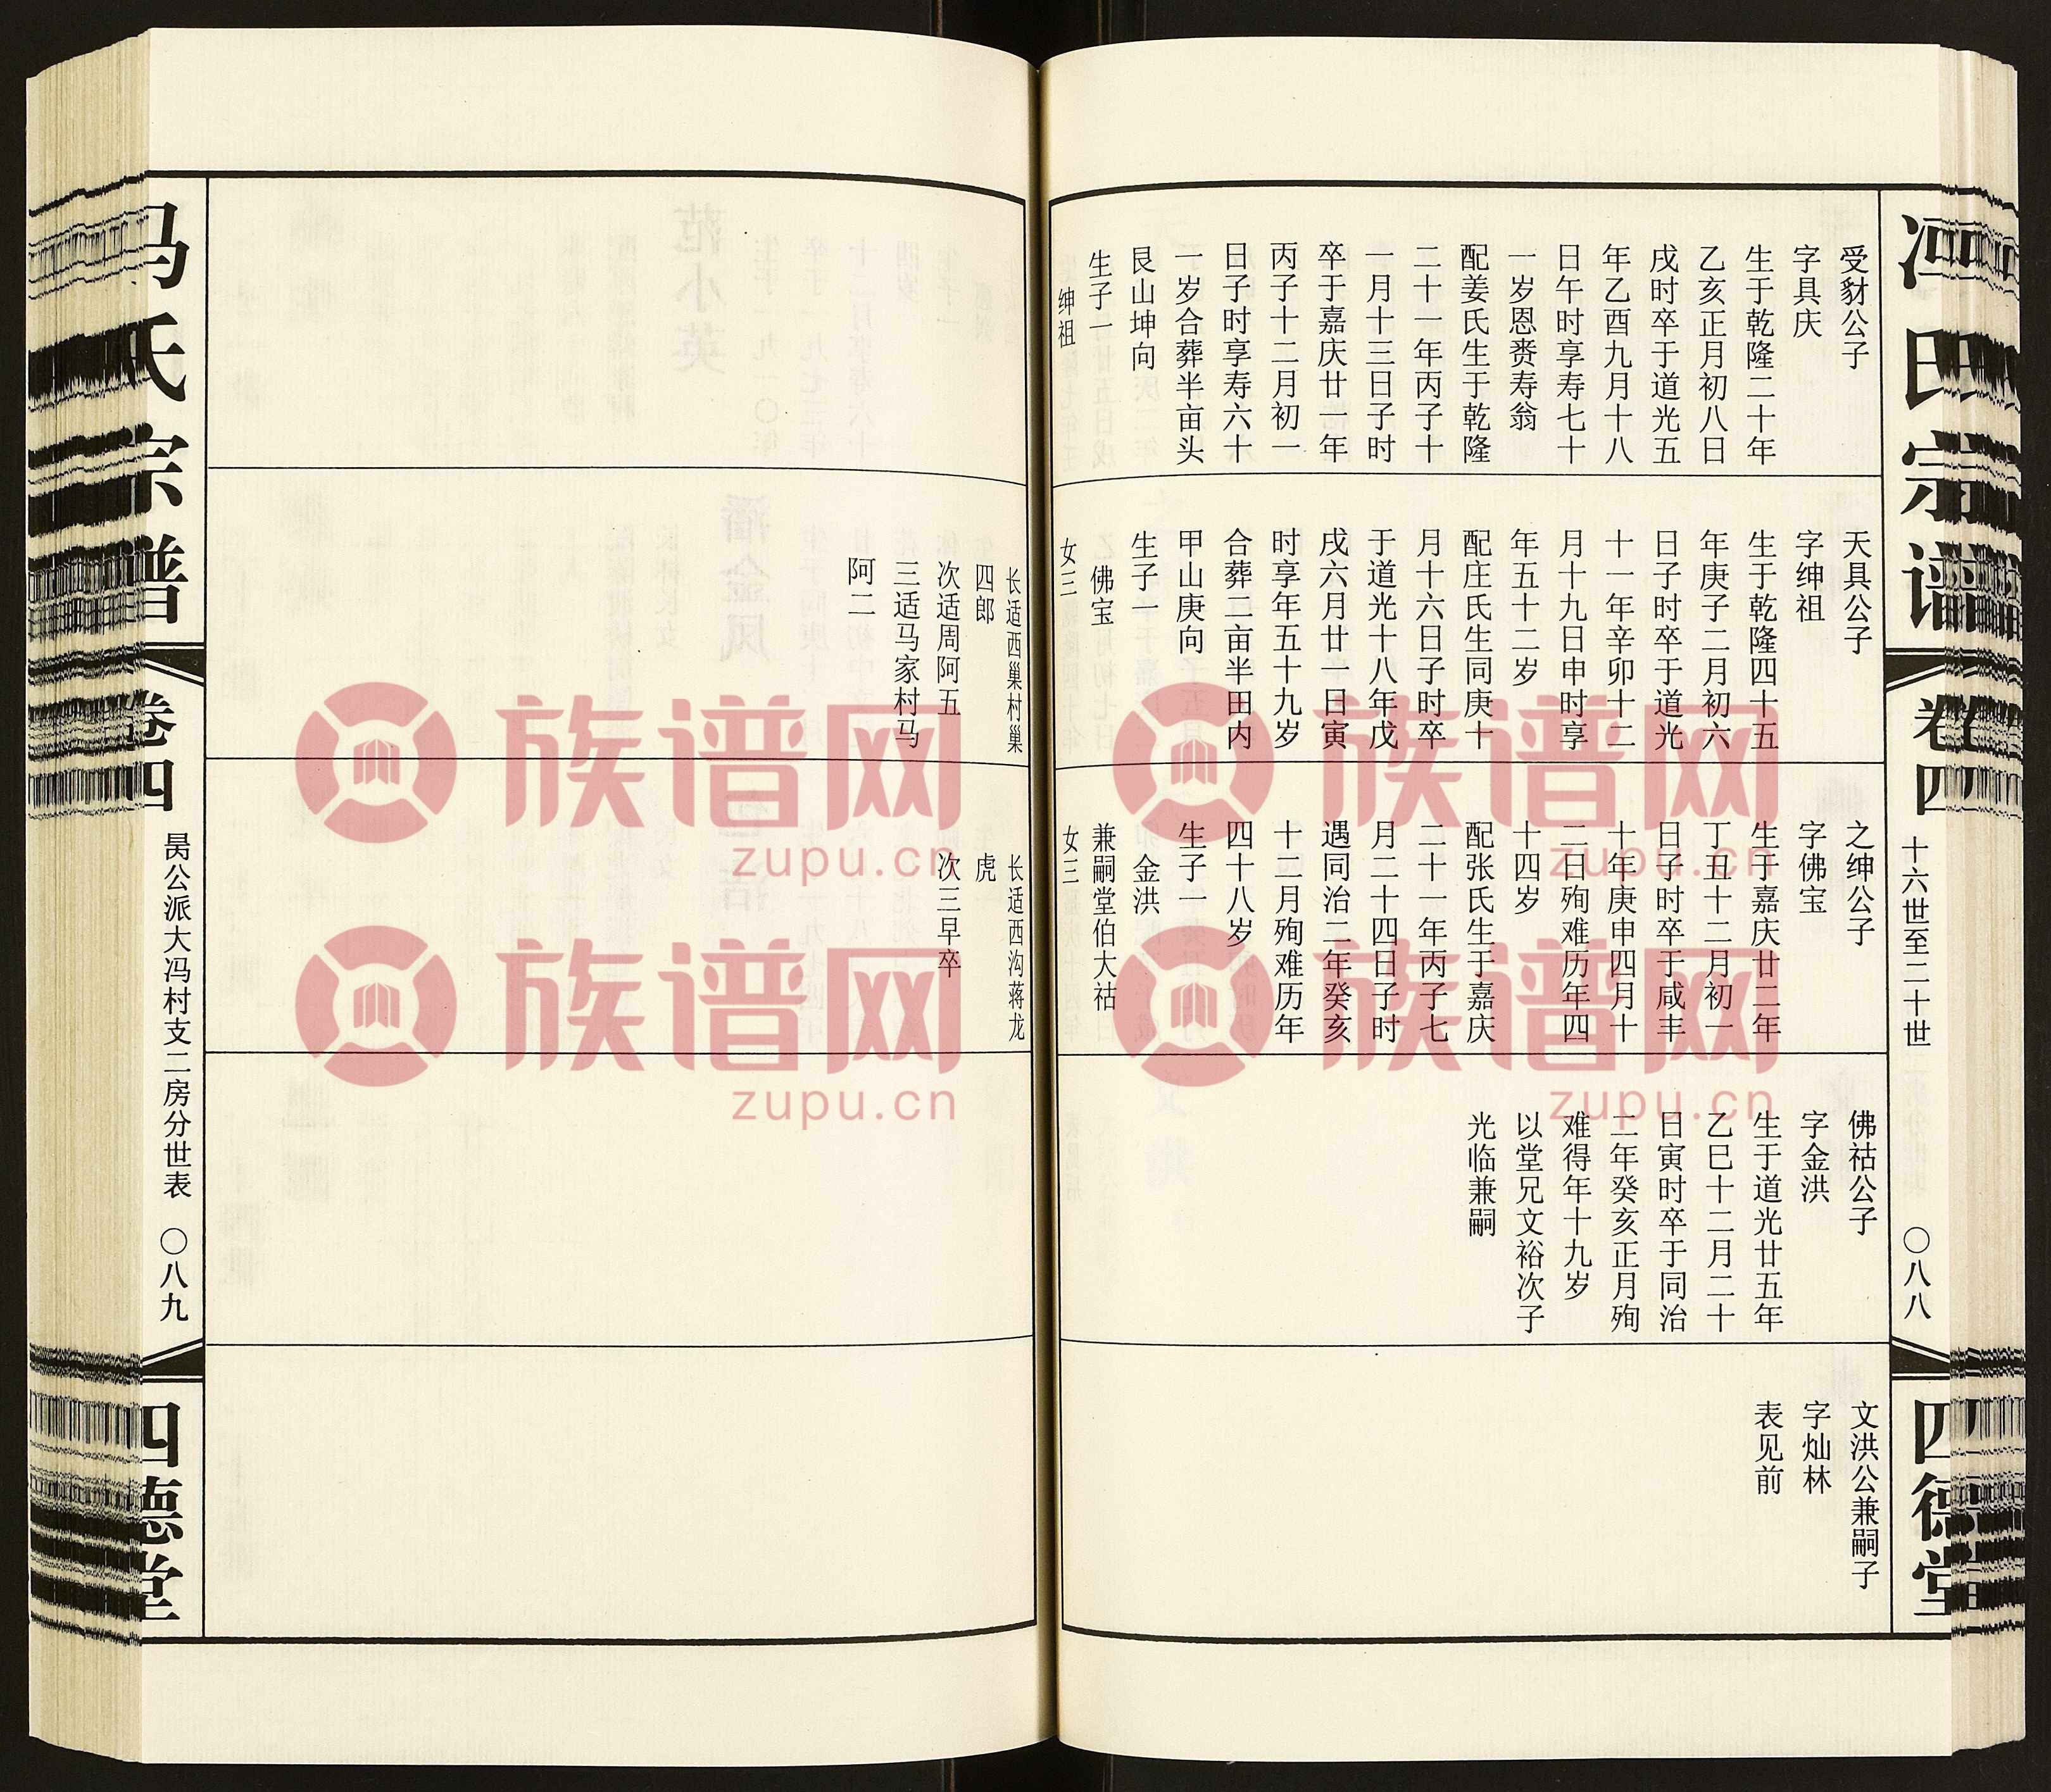 冯氏宗谱
卷四
十六世至二十世
〇八八
四德堂
受豺公子
字具庆
生于乾隆二十年
乙亥正月初八日
戌时卒于道光五
年乙酉九月十八
日午时享寿七十
一岁恩赉寿翁
配姜氏生于乾隆
二十一年丙子十
一月十三日子时
卒于嘉庆廿一年
丙子十二月初一
日子时享寿六十
一岁合葬半亩头
艮山坤向
生子一
绅祖
天具公子
字绅祖
生于乾隆四十五
年庚子二月初六
日子时卒于道光
十一年辛卯十二
月十九日申时享
年五十二岁
配庄氏生同庚十
月十六日子时卒
于道光十八年戊
戌六月廿一日寅
时享年五十九岁
合葬二亩半田内
甲山庚向
生子一
佛宝
女三
之绅公子
字佛宝
生于嘉庆廿二年
丁丑十二月初一
日子时卒于咸丰
十年庚申四月十
二日殉难历年四
十四岁
配张氏生于嘉庆
二十一年丙子七
月二十四日子时
遇同治二年癸亥
十二月殉难历年
四十八岁
生子一
金洪
兼嗣堂伯大祜
女三
佛祜公子
字金洪
生于道光廿五年
乙巳十二月二十
日寅时卒于同治
二年癸亥正月殉
难得年十九岁
以堂兄文裕次子
光临兼嗣
文洪公兼嗣子
字灿林
表见前
长适西巢村巢
四郎
次适周阿五
三适马家村马
阿二
长适西沟蒋龙
虎
次三早卒
冯氏宗谱
卷四
昺公派大冯村支二房分世表
〇八九
四德堂
族谱网
zupu.cn
族谱网
zupu.cn
族谱网
zupu.cn
族谱网
zupu.cn